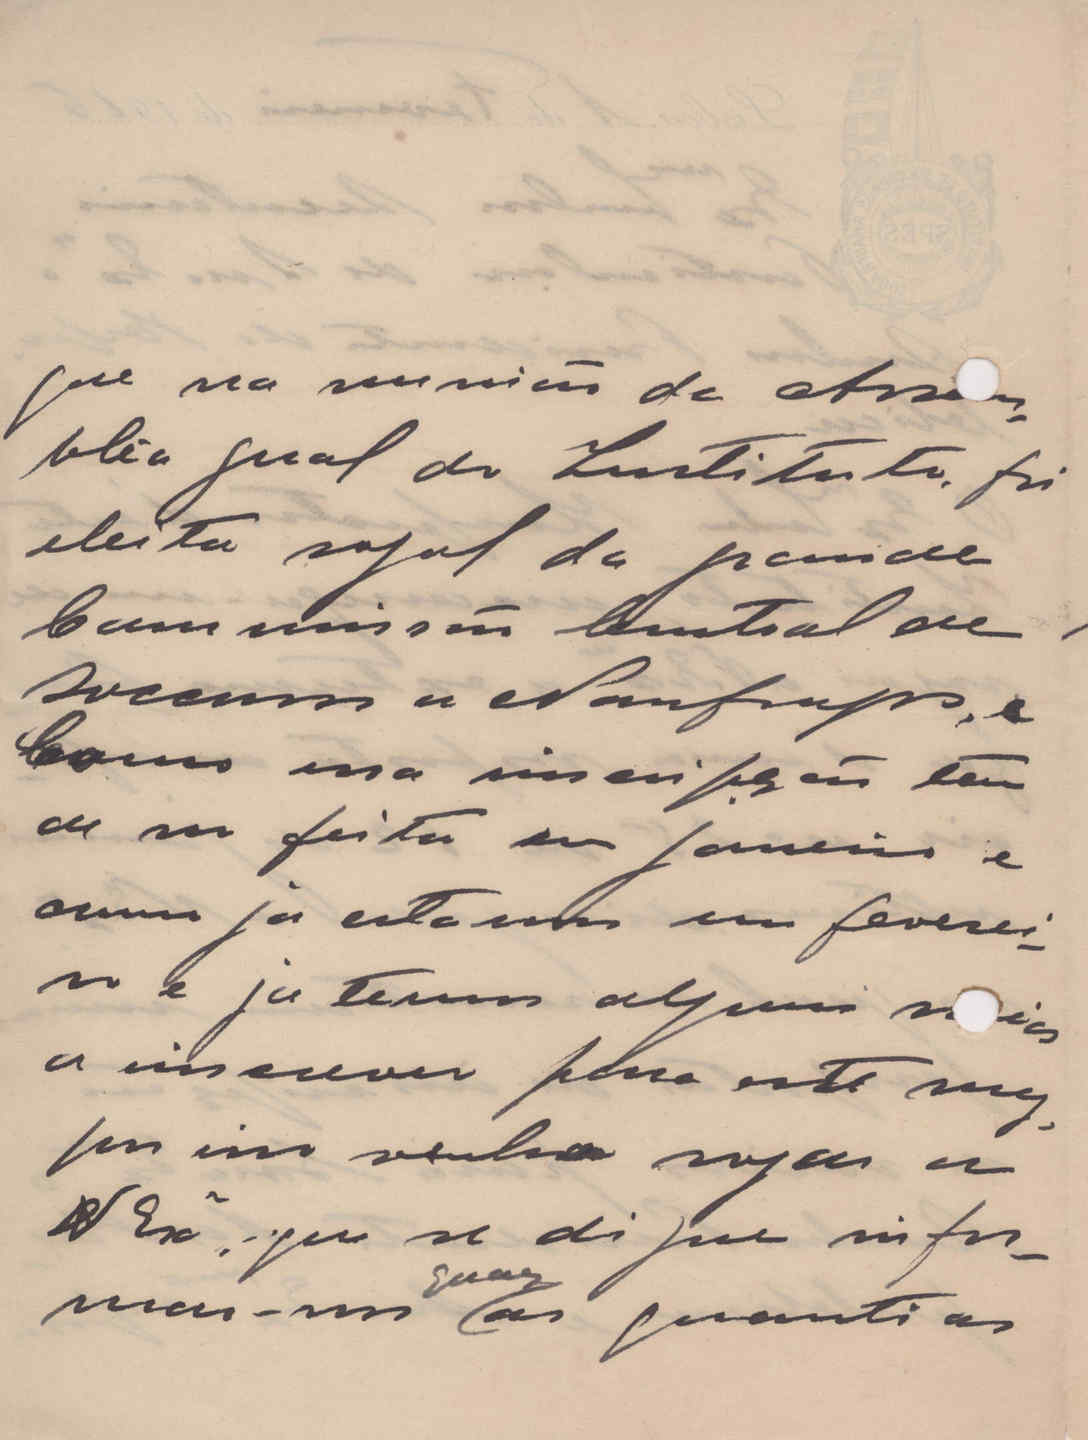 que na reunião da Assem-
bléa geral do Instituto, foi
eleita vogal da grande
Commissão Central de
soccorros a Naufragos, e
como essa inscripção tem
de ser feita em janeiro e
como já estamos em feverei-
ro e já temos alguns socios
a inscrever para este
por isso venho rogar a
V Exª, que se digne infor-
mar-nos quaes as quantias